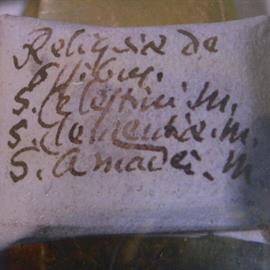 Reliquiæ de
Ossibus.
S. Celestini. M.
S. Clementiæ. M.
S. Amadei. M